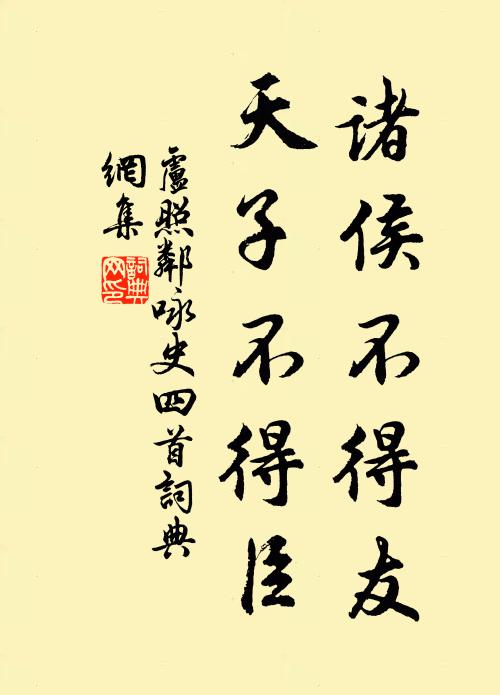 諸侯不得友
天子不得臣
盧照鄰咏史四首詞典
網集
詞典網印